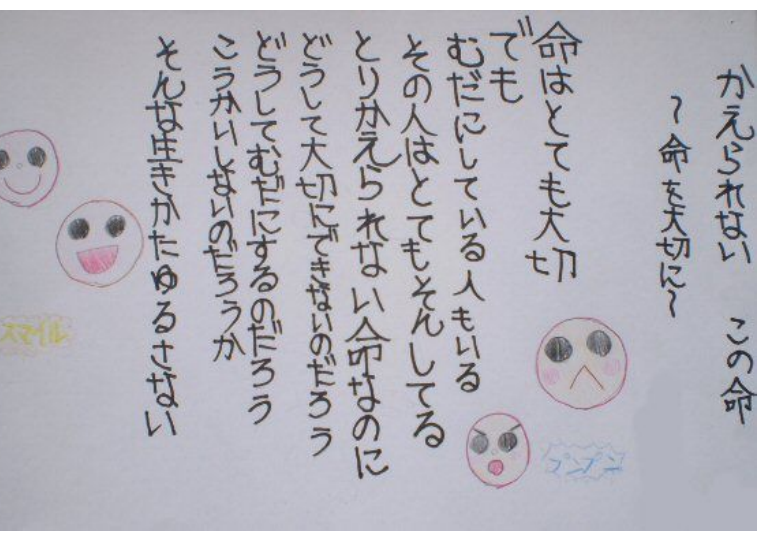 かえられない この命
～命を大切に～
命はとても大切
でも
むだにしている人もいる
その人はとてもそんしてる
とりかえられない命なのに
どうして大切にできないのだろう
どうしてむだにするのだろう
こうかいしないのだろうか
そんな生きかたゆるさない
プンプン
スマイル